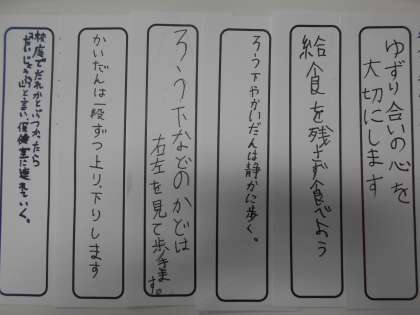 ゆずり合いの心を
大切にします
給食を残さず食べよう
ろう下やかいだんは静かに歩く。
ろう下などのかどは
右左を見て歩きます。
かいだんは一段ずつ上り、下りします
校庭でだれかとぶつかったら
「だいじょうぶ」と言い、保健室に連れていく。